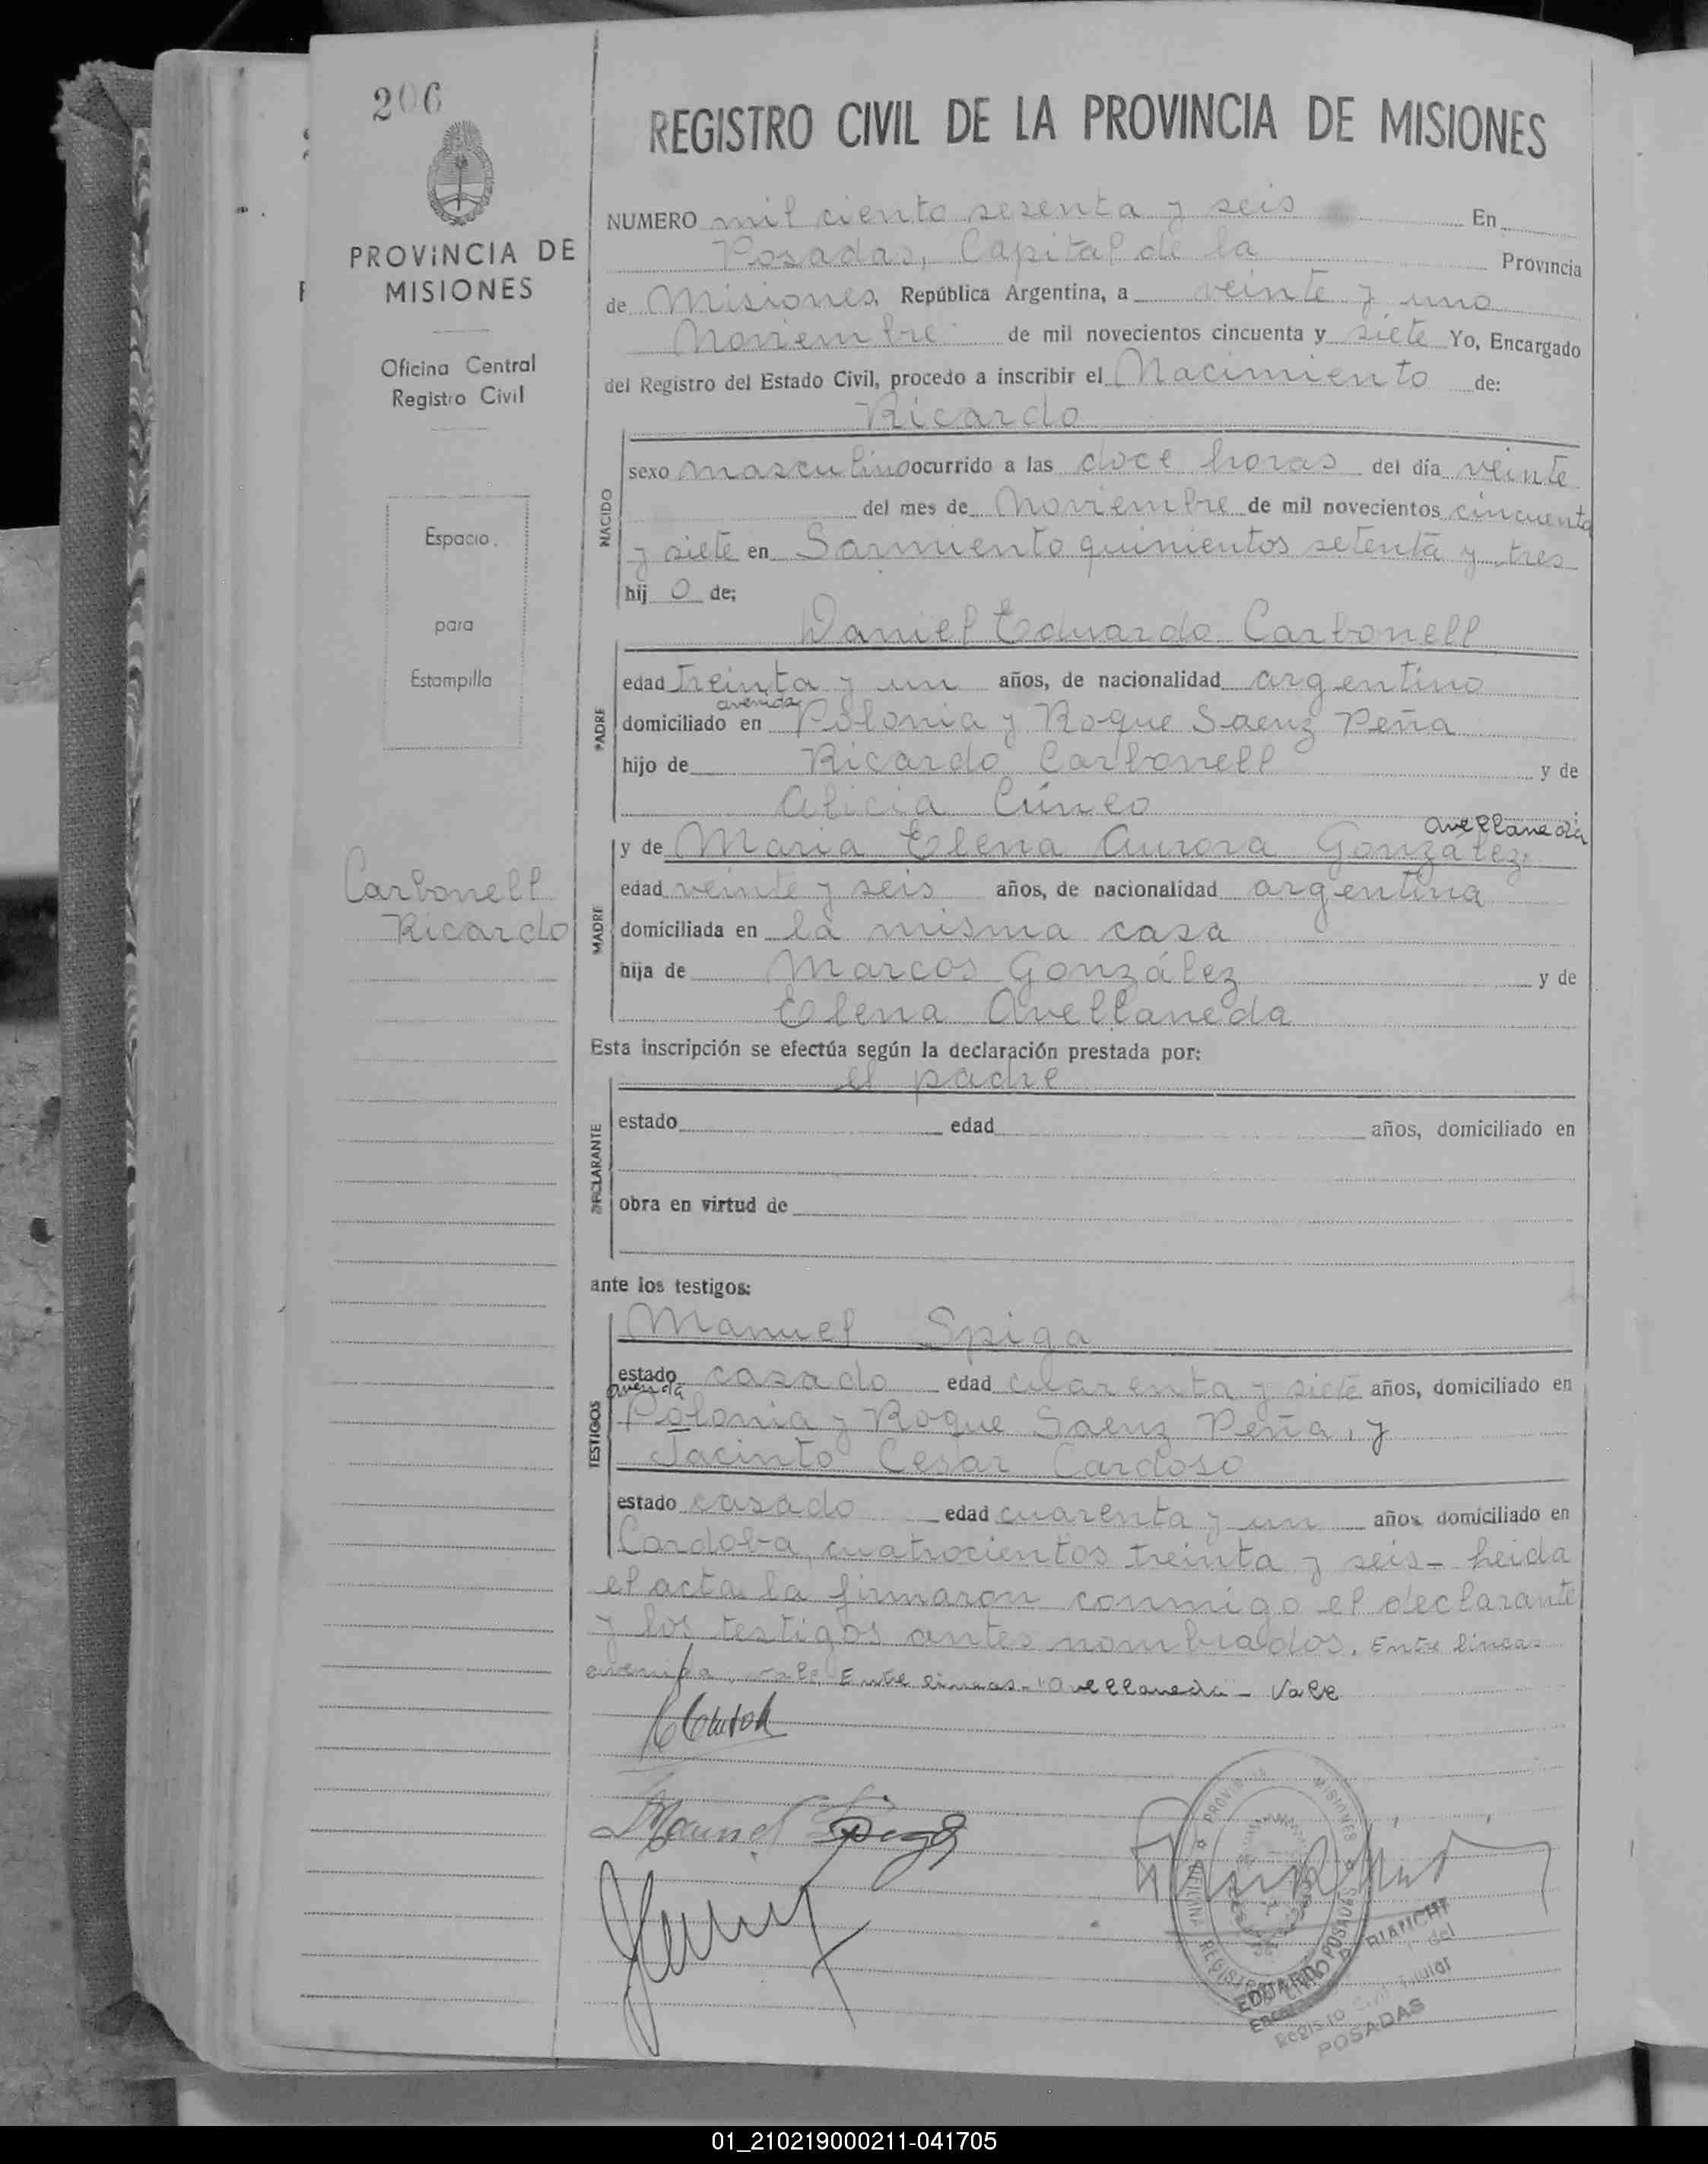 206
PROVINCIA DE
MISIONES
Oficina Central
Registro Civil
Espacio
para
Estampilla
Carbonell
Ricardo
REGISTRO CIVIL DE LA PROVINCIA DE MISIONES
NUMERO mil ciento sesenta y seis En
Posadas, Capital de la Provincia
de Misiones, República Argentina, a veinte y uno
Noviembre de mil novecientos cincuenta y siete Yo, Encargado
del Registro del Estado Civil, procedo a inscribir el Nacimiento de:
Ricardo
NACIDO
sexo masculino ocurrido a las doce horas del día veinte
del mes de Noviembre de mil novecientos cincuenta
y siete en Sarmiento quinientos setenta y tres
hij o de;
Daniel Eduardo Carbonell
PADRE
edad treinta y un años, de nacionalidad argentino
avenida
domiciliado en Polonia y Roque Saenz Peña
hijo de Ricardo Carbonell y de
Alicia Cúneo
MADRE
Avellaneda
y de Maria Elena Aurora González
edad veinte y seis años, de nacionalidad argentina
domiciliada en la misma casa
hija de Marcos González y de
Elena Avellaneda
Esta inscripción se efectúa según la declaración prestada por:
el padre
DECLARANTE
estado edad años, domiciliado en
obra en virtud de
ante los testigos:
TESTIGOS
Manuel Spiga
estado casado edad cuarenta y siete años, domiciliado en
avenida
Polonia y Roque Saenz Peña, y
Jacinto Cesar Cardoso
estado casado edad cuarenta y un años domiciliado en
Cordoba, cuatrocientos treinta y seis - Leida
el acta la firmaron conmigo el declarante
y los testigos antes nombrados. Entre líneas
avenida, vale. Entre lineas - "Avellaneda - Vale
Manuel Spiga
PROVINCIA MISIONES
OFICINA REGISTRO POSADAS
EDUARDO
del
Registro Civil Titular
POSADAS
01_210219000211-041705